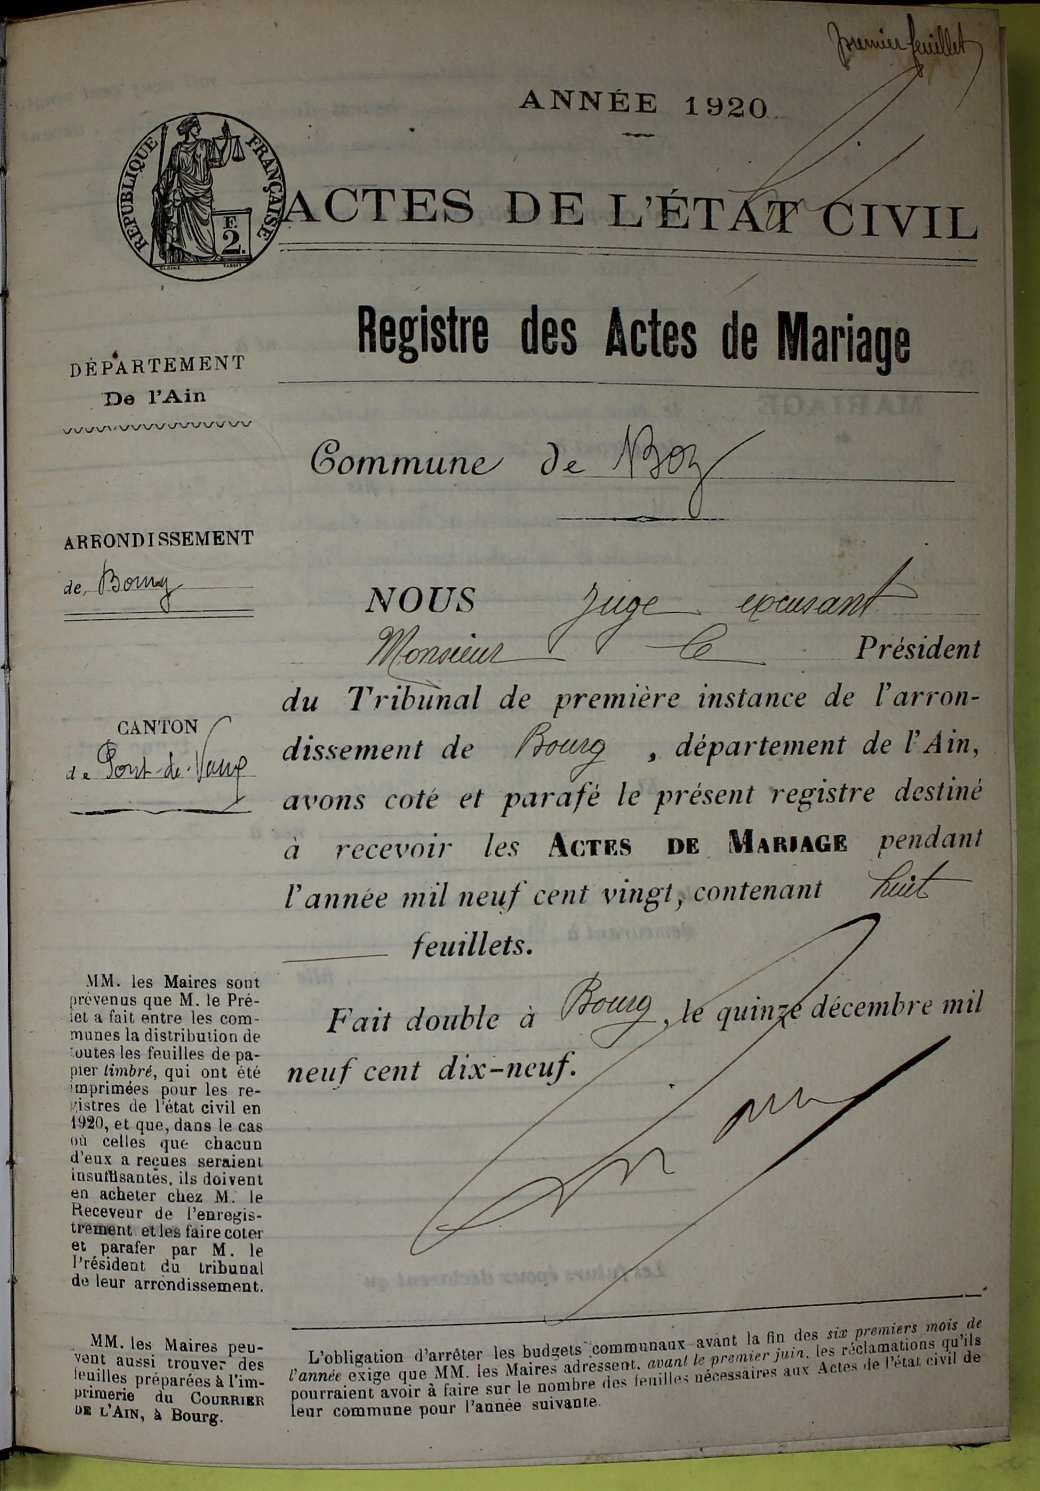 premier feuillet
ANNÉE 1920
RÉPUBLIQUE FRANÇAISE
F.
2.
ACTES DE L'ÉTAT CIVIL
Registre des Actes de Mariage
DÉPARTEMENT
De l'Ain
Commune de Boz
ARRONDISSEMENT
de Bourg
NOUS Juge excusant
Monsieur le Président
du Tribunal de première instance de l'arron-
dissement de Bourg, département de l'Ain,
avons coté et parafé le présent registre destiné
à recevoir les ACTES DE MARIAGE pendant
l'année mil neuf cent vingt, contenant huit
feuillets.
CANTON
de Pont-de-Vaux
Fait double à Bourg, le quinze décembre mil
neuf cent dix-neuf.
MM. les Maires sont
prévenus que M. le Pré-
fet a fait entre les com-
munes la distribution de
toutes les feuilles de pa-
pier timbré, qui ont été
imprimées pour les re-
gistres de l'état civil en
1920, et que, dans le cas
où celles que chacun
d'eux a reçues seraient
insuffisantes, ils doivent
en acheter chez M. le
Receveur de l'enregis-
trement et les faire coter
et parafer par M. le
Président du tribunal
de leur arrondissement.
MM. les Maires peu-
vent aussi trouver des
feuilles préparées à l'im-
primerie du COURRIER
DE L'AIN, à Bourg.
L'obligation d'arrêter les budgets communaux avant la fin des six premiers mois de
l'année exige que MM. les Maires adressent, avant le premier juin, les réclamations qu'ils
pourraient avoir à faire sur le nombre des feuilles nécessaires aux Actes de l'état civil de
leur commune pour l'année suivante.